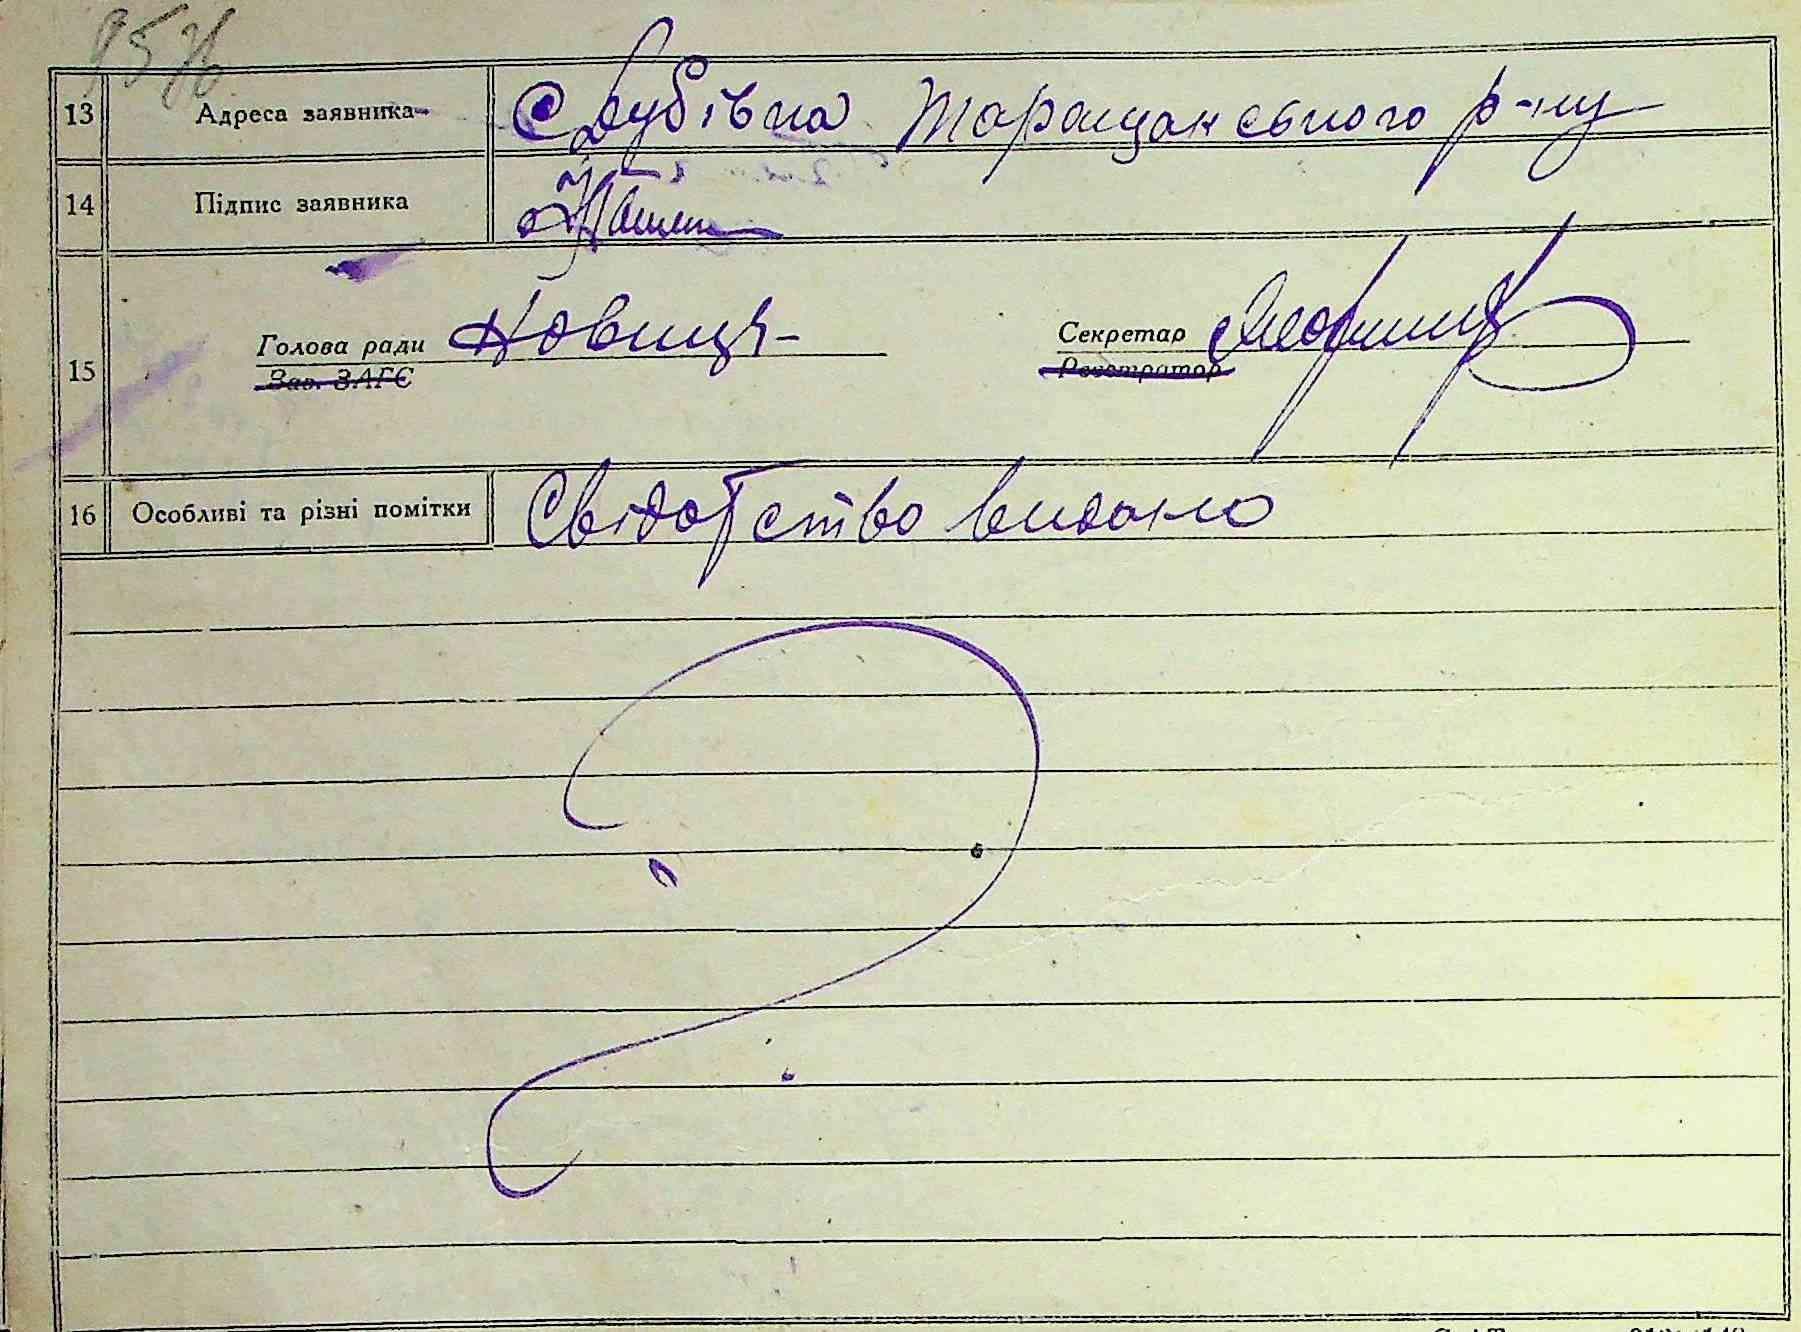 13 Адреса заявника с Дубівка Таращанського р-ну
14 Підпис заявника
15 Голова ради Новиця- Секретар
Зав. ЗАГС Реєстратор
16 Особливі та різні помітки Свідотство видано